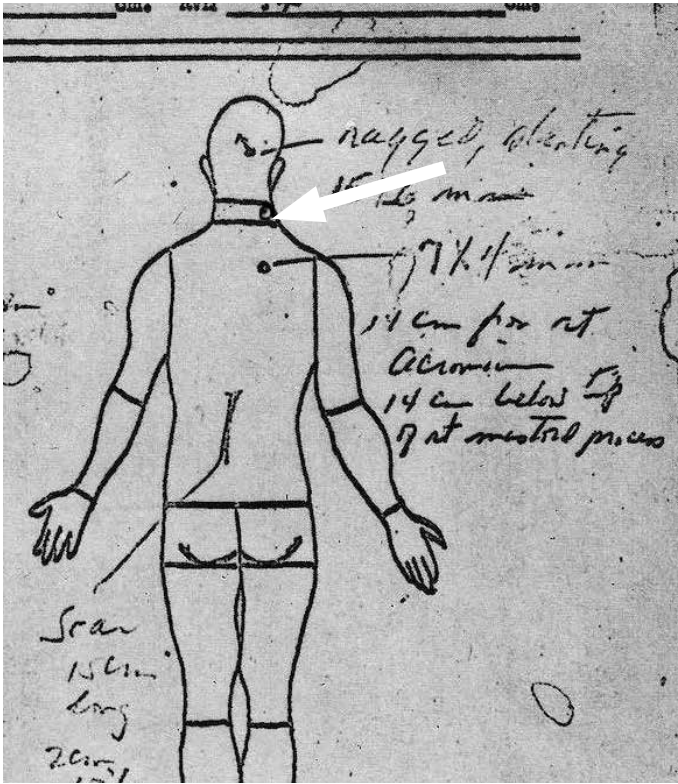 ragged, slanting
15 x 6 mm
7 x 4 mm
14 cm from rt
acromium
14 cm below tip
of rt mastoid process
Scar
15 cm
long
2cm